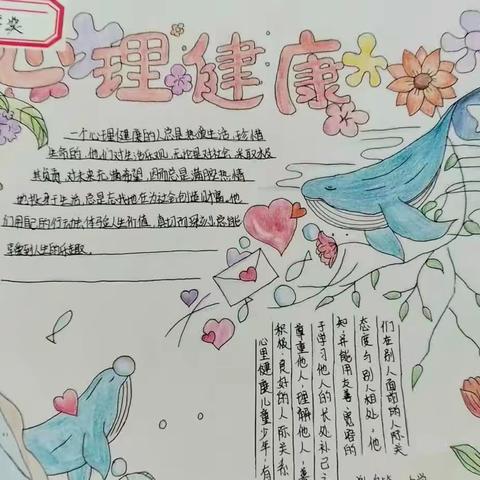 奖
心理健康
一个心理健康的人总是热爱生活,珍惜
生命的,他们对生活乐观,无论是对社会,采取积
其负责,对未来充满希望,因而总是满腔热情
地投身于生活,总是去找地在为社会创造财富,他
们用自己的行动去体验人生价值,真切而深刻,总能
享受到人生的乐趣。
心里健康儿童少年,有
积极、良好的人际关系
尊重他人,理解他人,善
于学习他人的长处补己之
知,并能用友善、宽容的
态度与别人相处,他
们在别人面前的人际关